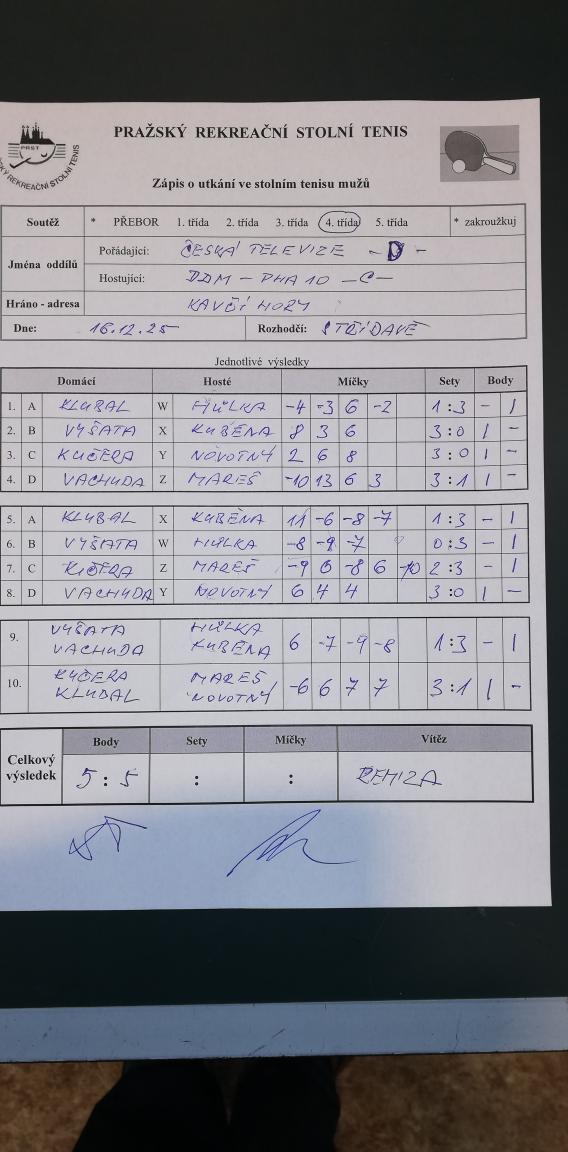 PRAŽSKÝ REKREAČNÍ STOLNÍ TENIS
PRST
REKREAČNÍ STOLNÍ TENIS
Zápis o utkání ve stolním tenisu mužů
Soutěž * PŘEBOR 1. třída 2. třída 3. třída 4. třída 5. třída * zakroužkuj
Jména oddílů
Pořádající: ČESKÁ TELEVIZE - D -
Hostující: DDM - PHA 10 - C -
Hráno - adresa KAVČÍ HORY
Dne: 16.12.25 Rozhodčí: STŘÍDAVĚ
Jednotlivé výsledky
Domácí Hosté Míčky Sety Body
1. A KLUBAL W HŮLKA -4 -3 6 -2 1:3 - 1
2. B VYŠATA X KUBĚNA 8 3 6 3:0 1 -
3. C KUČERA Y NOVOTNÝ 2 6 8 3:0 1 -
4. D VACHUDA Z MAREŠ -10 13 6 3 3:1 1 -
5. A KLUBAL X KUBĚNA 11 -6 -8 -7 1:3 - 1
6. B VYŠATA W HŮLKA -8 -9 -7 0:3 - 1
7. C KUČERA Z MAREŠ -9 6 -8 6 -10 2:3 - 1
8. D VACHUDA Y NOVOTNÝ 6 4 4 3:0 1 -
9. VYŠATA HŮLKA
VACHUDA KUBĚNA 6 -7 -9 -8 1:3 - 1
10. KUČERA MAREŠ
KLUBAL NOVOTNÝ -6 6 7 7 3:1 1 -
Celkový výsledek
Body Sety Míčky Vítěz
5 : 5 : : REMÍZA